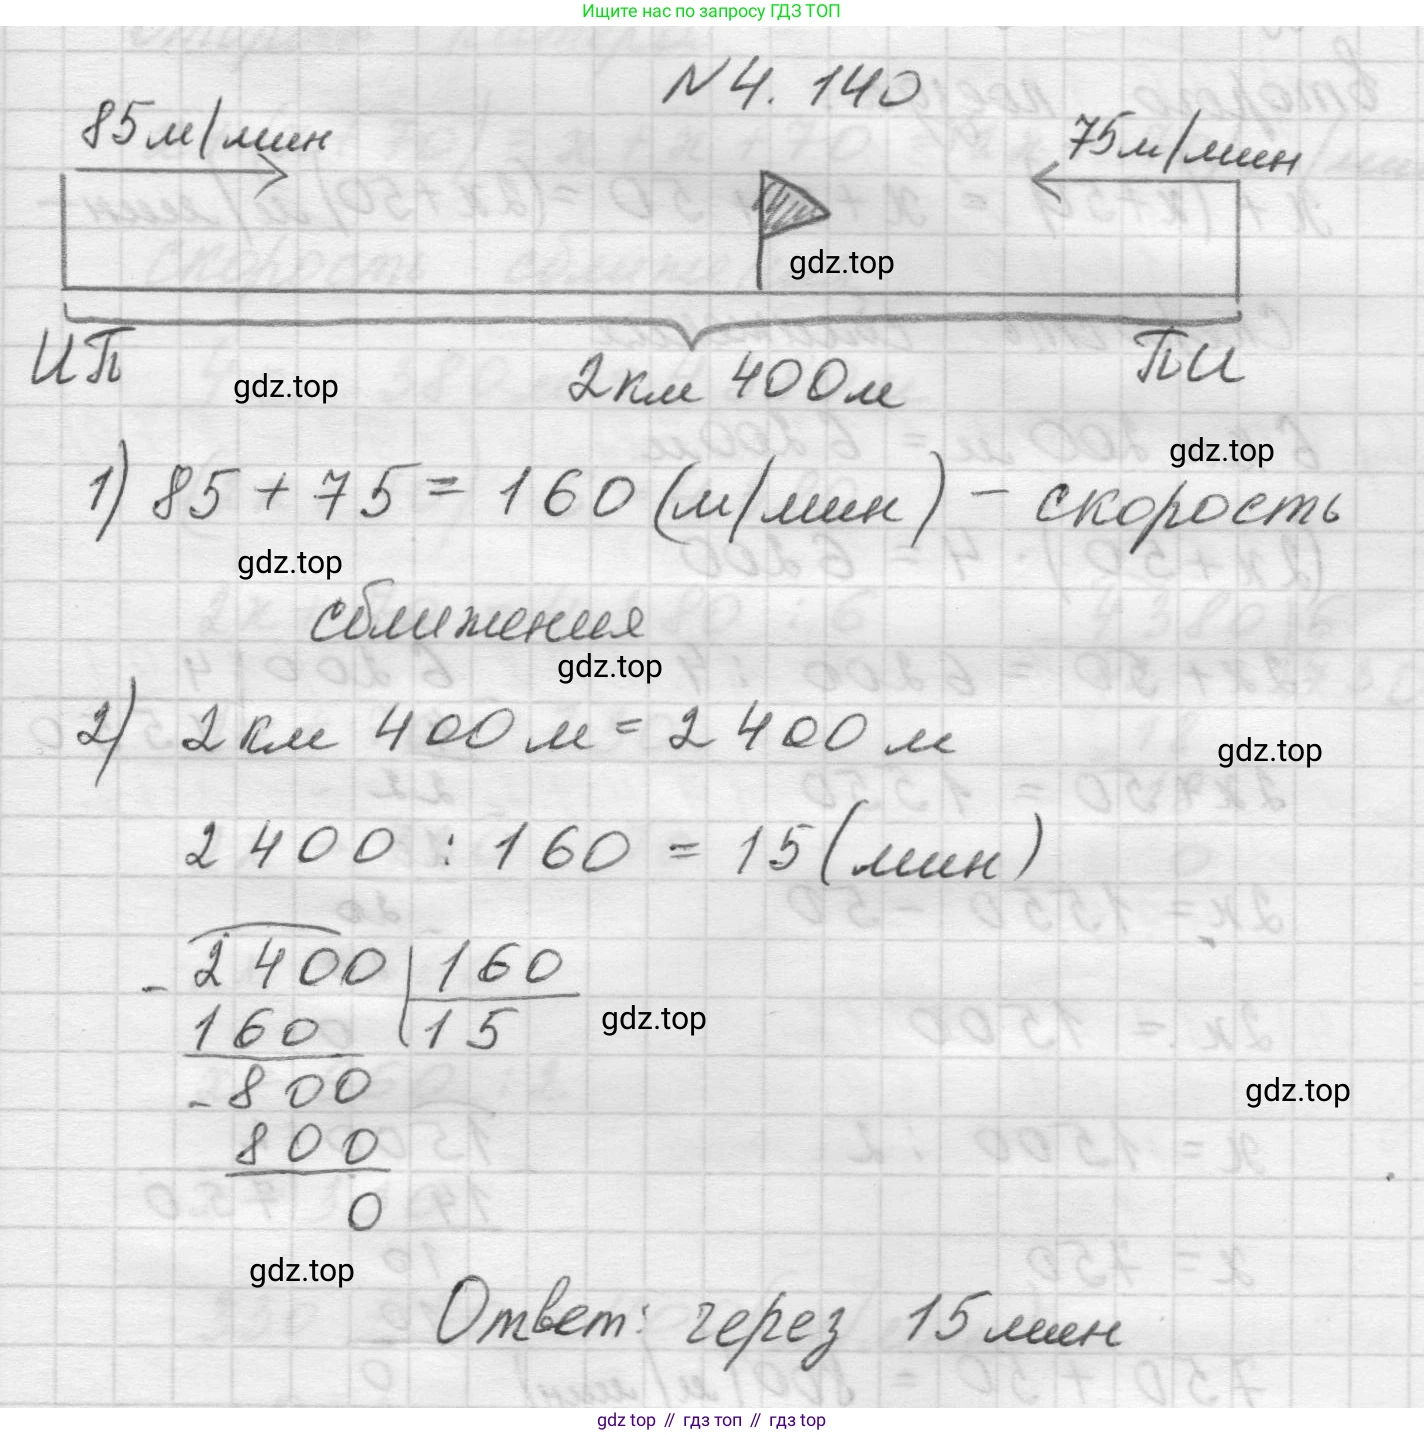 Ищите нас по запросу ГДЗ ТОП
N 4. 140
85м/мин
75м/мин
gdz.top
ИП
ПИ
gdz.top
2км 400м
gdz.top
1) 85 + 75 = 160 (м/мин) - скорость
gdz.top
сближения
gdz.top
2) 2км 400м = 2 400 м
gdz.top
2 400 : 160 = 15 (мин)
- 2400 | 160
160 | 15
gdz.top
- 800
gdz.top
800
0
gdz.top
Ответ: через 15 мин
gdz top // гдз топ // gdz top